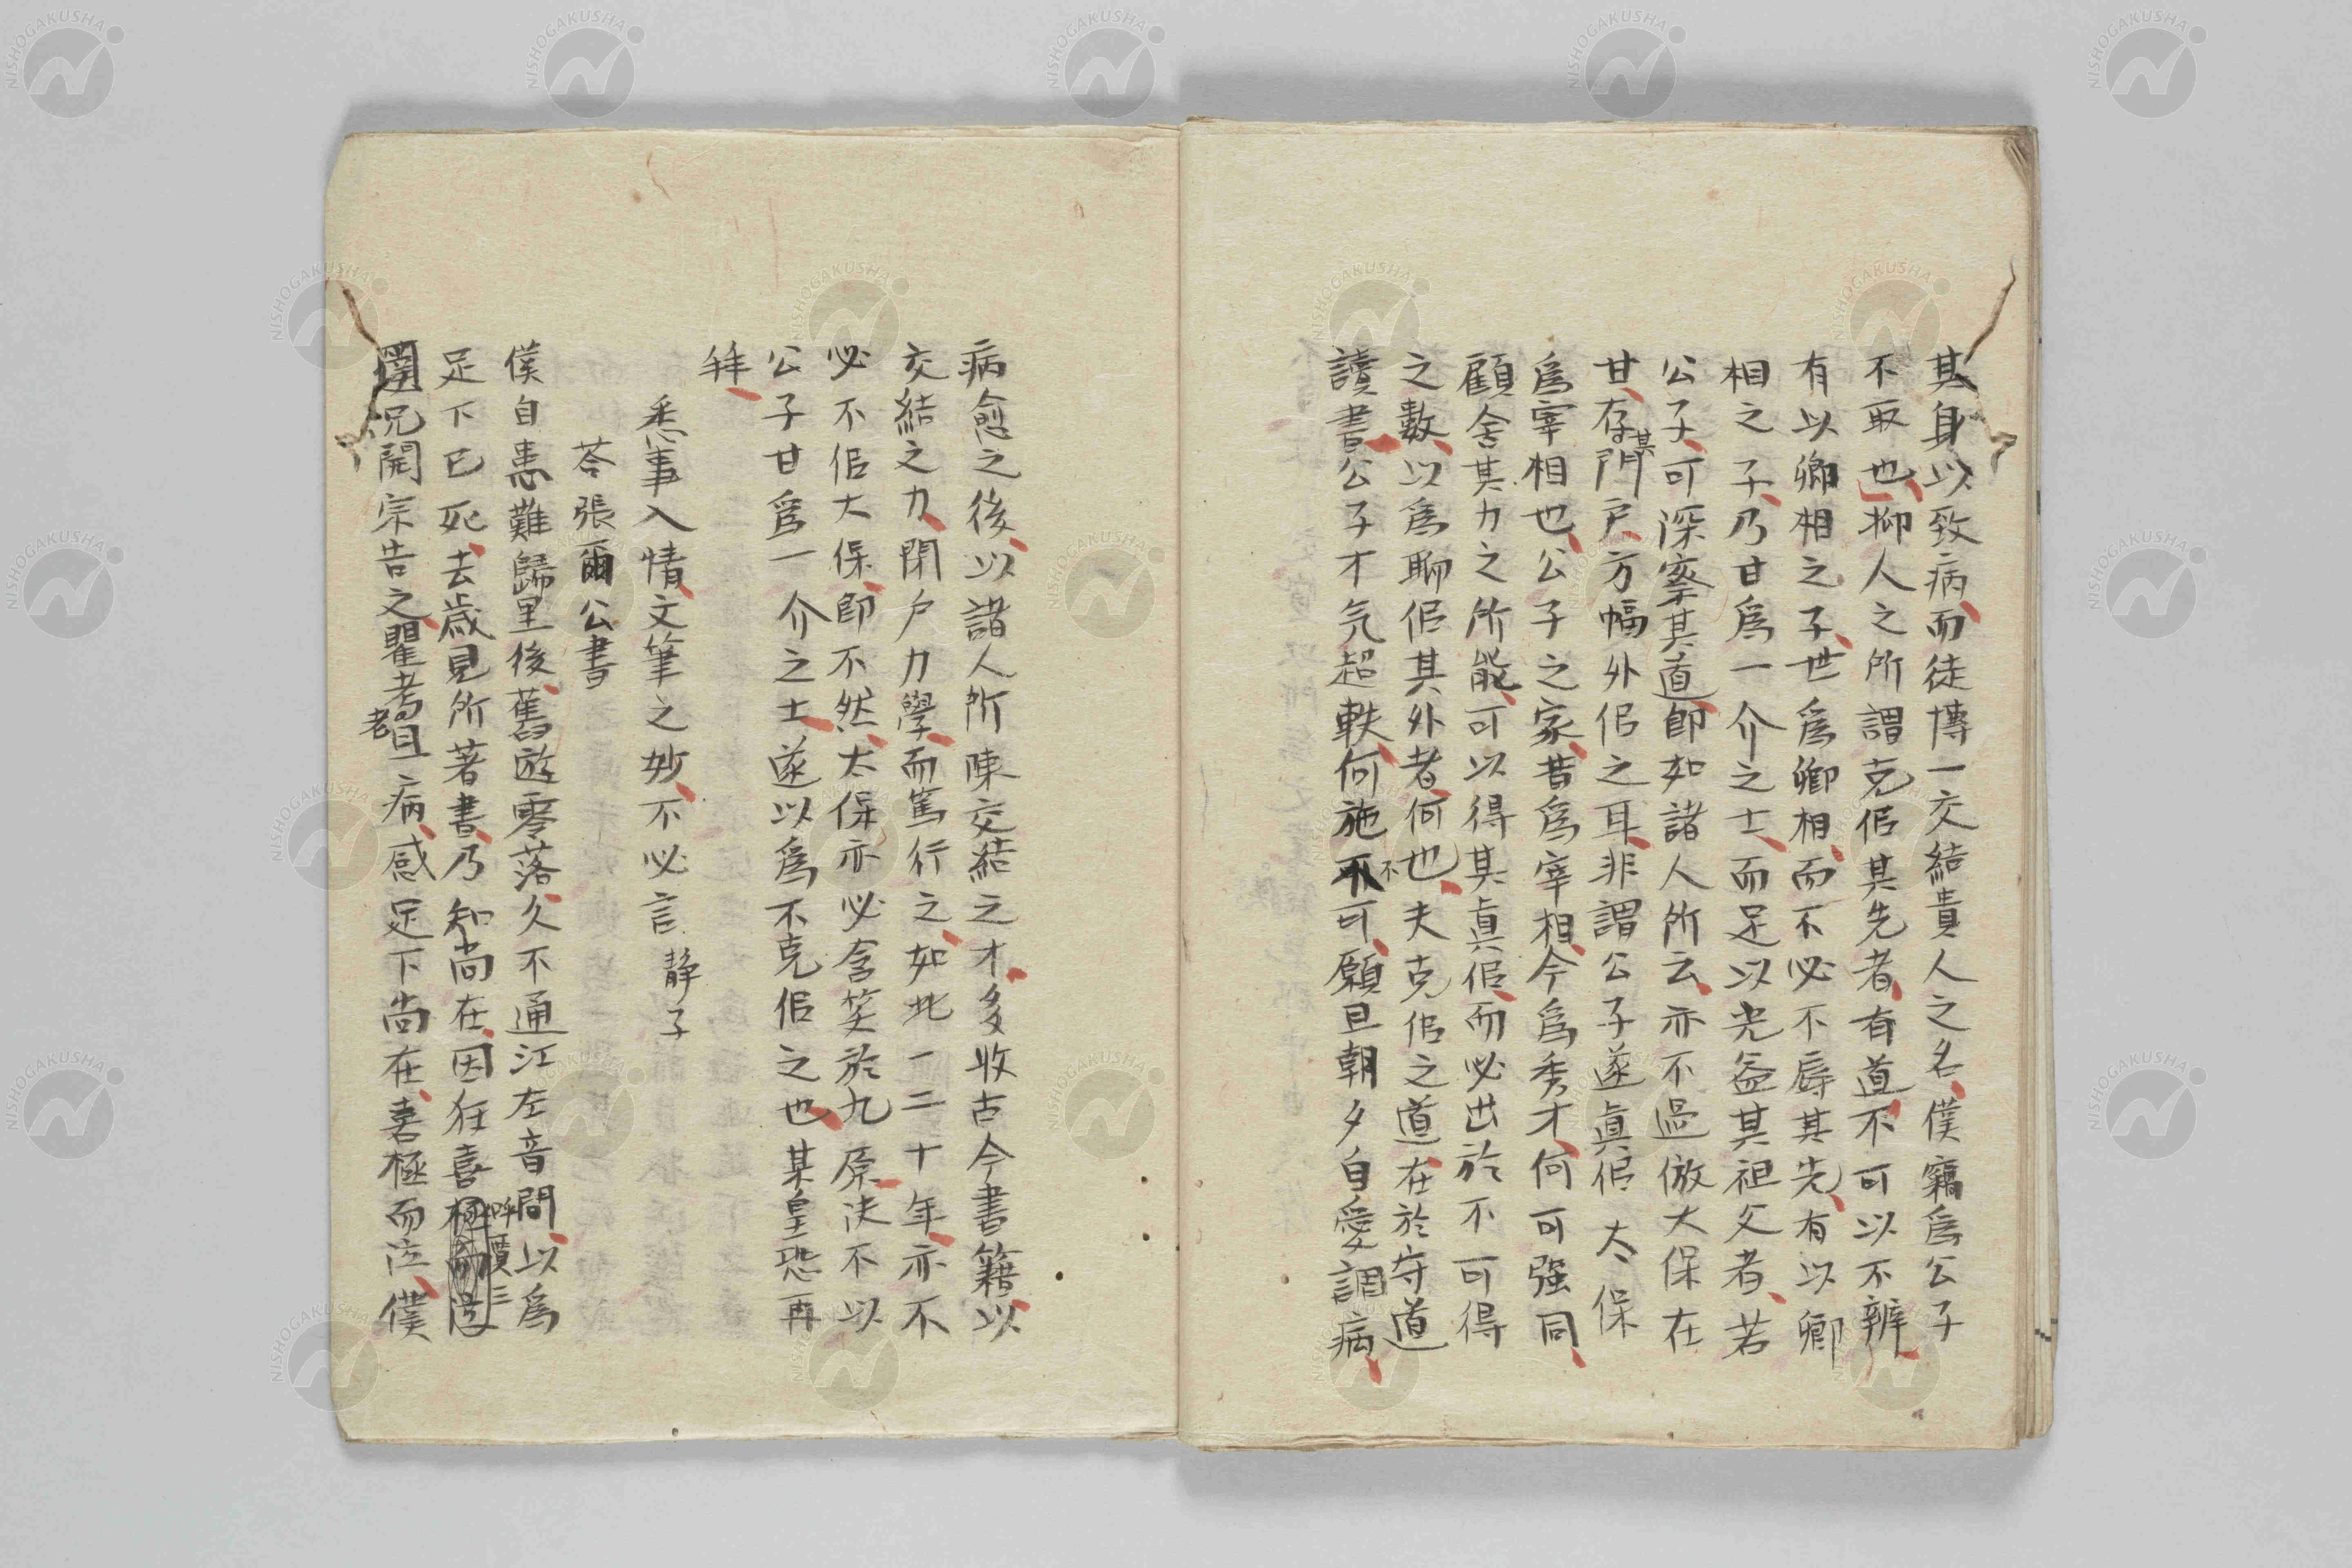 其身以致病而徒博一交結貴人之名僕竊爲公子
不取也抑人之所謂克佀其先者有道不可以不辨
有以卿相之子世爲卿相而不必不辱其先有以卿
相之子乃甘爲一介之士而足以光益其祖父者若
公子可深察其道即如諸人所云亦不過倣大保在
甘存其門戸方幅外佀之耳非謂公子遂眞佀太保
爲宰相也公子之家昔爲宰相今爲秀才何可強同
顧舍其力之所能可以得其眞佀而必出於不可得
之數以爲聊佀其外者何也夫克佀之道在於守道
讀書公子才気超軼何施不可願旦朝夕自愛調病
病愈之後以諸人所陳交結之才多收古今書籍以
交結之力閉户力學而篤行之如此一二十年亦不
必不佀大保即不然太保亦必含笑於九原決不以
公子甘爲一介之士遂以爲不克佀之也某皇恐再
拜
悉事入情文筆之妙不必言 静子
荅張爾公書
僕自患難歸里後舊遊零落久不通江左音問以爲
足下已死去歳見所著書乃知尚在因狂喜
況開宗告之瞿老且病感足下尚在喜極而泣僕
NISHOGAKUSHA